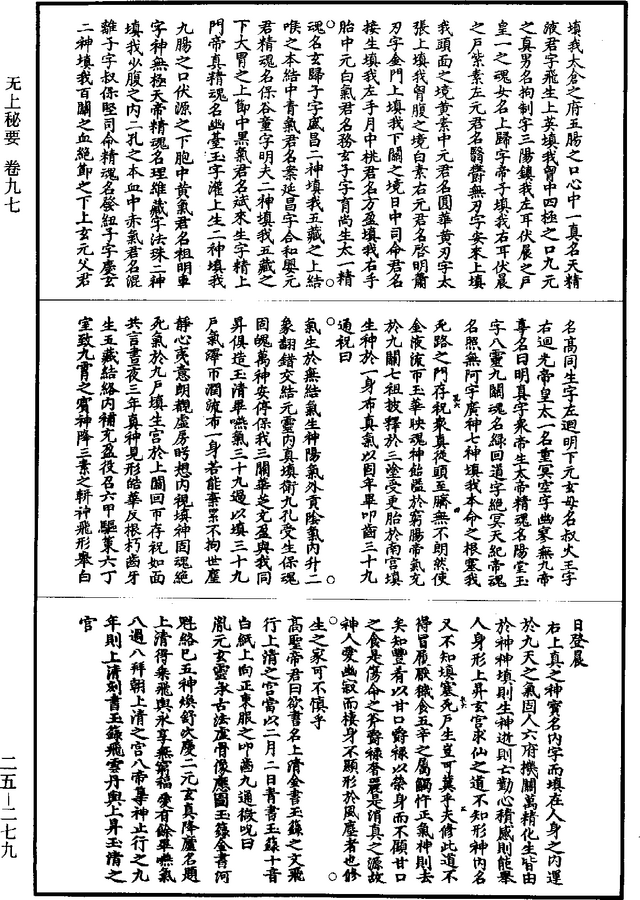 无上秘要 卷九七
填我太倉之府五腸之口心中一真名天精
液君字飛生上英填我胷中四極之口九元
之真男名拘制字三陽鎮我左耳伏晨之戶
皇一之魂女名上歸字帝子填我右耳伏晨
之戶紫素左元君名翳鬱無刃字安來上填
我頭面之境黃素中元君名圓華黃刃字太
張上填我胷腹之境白素右元君名啓明蕭
刃字金門上填我下關之境日中司命君名
接生填我左手月中桃君名方盈填我右手
胎中元白氣君名務玄子字育尚生太一精
魂名玄歸子字盛昌二神填我五藏之上結
喉之本結中青氣君名案延昌字合和嬰元
君精魂名保谷童字明夫二神填我五藏之
下大胃之上節中黑氣君名斌來生字精上
門帝真精魂名幽臺玉字灌上生二神填我
九腸之口伏源之下胞中黃氣君名祖明車
字神無極天帝精魂名理維藏字法珠二神
填我少腹之內二孔之本血中赤氣君名混
離子字叔保堅司命精魂名發紐子字慶玄
二神填我百關之血絕節之下上玄元父君
名高同生字左迴明下元玄母名叔火王字
右迴光帝皇太一名重冥空字幽寥無九帝
尊名日明真字衆帝生太帝精魂名陽堂玉
字八靈九關魂名綠回道字絕冥天紀帝魂
名照無阿字廣神七神填我本命之根塞我
死路之門存祝衆真從頭至臍無不朗然使
金液流帀玉華映魂神飴溢於窮腸帝氣充
於九關七祖披釋於三塗受更胎於南宮填
生神於一身布真氣以固年畢叩齒三十九
通祝曰
氣生於無結氣生神陽氣外貢陰氣內升二
象翻錯交結元靈內真填衛九孔受生保魂
固魄萬神安停保我三關華芝充盈與我同
昇俱造玉清畢嚥氣三十九過以填三十九
戶氣澤帀潤流布一身若能棄累不拘世塵
靜心夷意朗觀虛房眄想內視填神固魂絕
死氣於九戶填生宮於上關回帀存祝如面
共言晝夜三年真神見形皓華反根朽齒牙
生五藏結絡內補充盈役召六甲驅策六丁
室致九霄之賓神降三素之輧神飛形舉白
日登晨
右上真之神實名內字而填在人身之內運
於九天之氣固人六府機關萬精化生皆由
於神神填則生神逝則亡勤心積感則能舉
人身形上昇玄宮求仙之道不知形神內名
又不知填塞死戶生豈可冀乎夫修此道不
得冒履厭穢食五辛之屬觸忤正氣神則去
矣知豐肴以甘口爵祿以榮身而不顯甘口
之食是傷命之斧爵祿香麗是消真之源故
神人愛幽寂而棲身不顯形於風塵者也修
生之家可不慎乎
高聖帝君曰欲書名上清金書玉籙之文飛
行上清之宮當以二月二日青書玉籙十音
白紙上向正東服之叩齒九通微呪曰
胤元玄靈承古法虛骨像應圖玉籙金書河
魁絡巳五神煥舒火慶二元玄真降廬名題
上清得乘飛與永享無窮福變有餘畢嚥氣
八過八拜朝上清之宮八帝尊神止行之九
年則上清刻書玉籙飛雲丹輿上昇玉清之
宮
二五—二七九